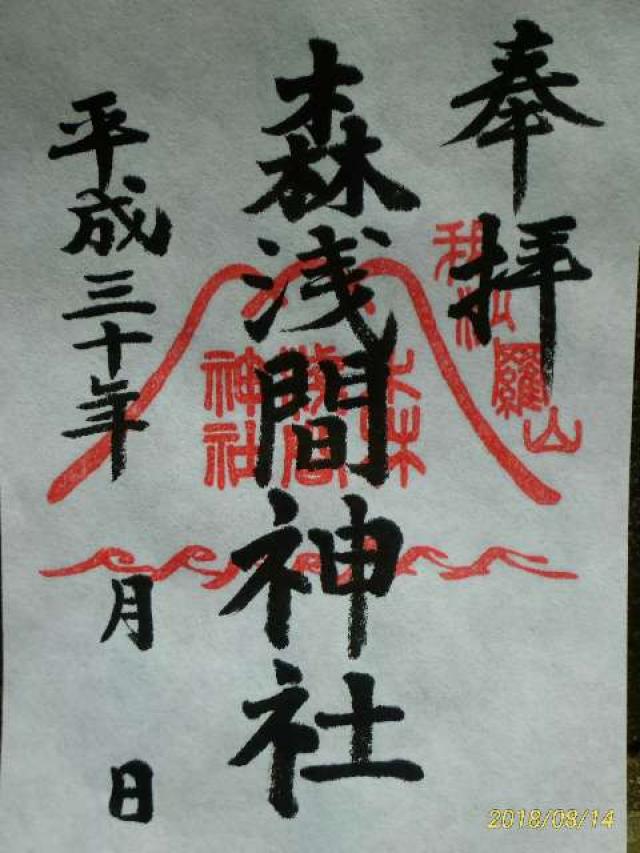 奉拝
森浅間神社
平成三十年
月
日
羅
山
神
社
2018/08/14